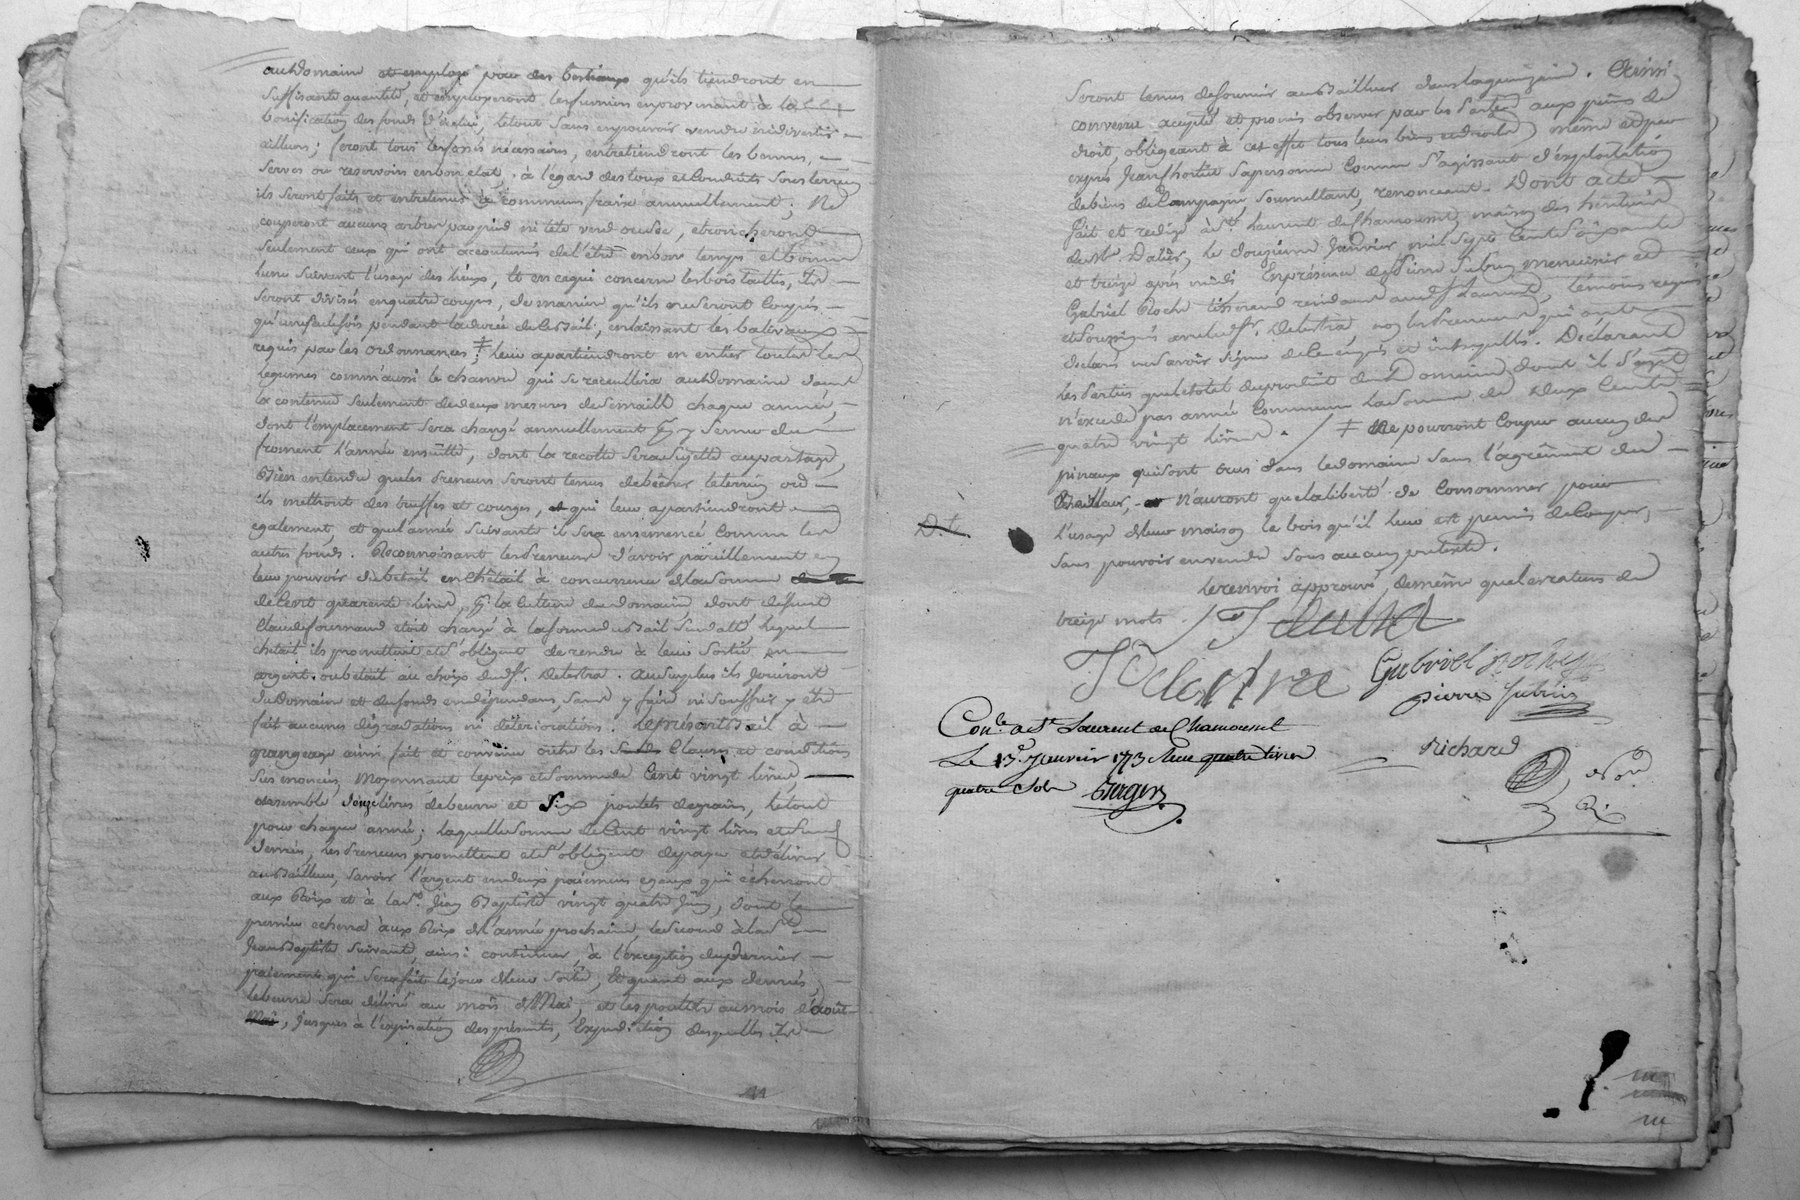 audt domaine et employé pour des bestiaux qu'ils tiendront en
suffisante quantité, et employeront les fumiers en provenant à la
bonification des fonds d'icelui, le tout sans en pouvoir vendre ni divertir
ailleurs; feront tous les fossés nécessaires, entretiendront les
serves ou reservoirs en bon etat, à l'égard des toux et conduits sousterrein
ils seront faits et entretenus à communs fraix annuellement; Ne
couperont aucuns arbres par pied ni tete verd ou sec, ebrancheront
seulement ceux qui ont accoutumés de l'être en bon temps et bonne
lune suivant l'usage des lieux, et en ce qui concerne les bois taillis, ils
seront divisés en quatre coupes, de maniere qu'ils ne seront coupés
qu'une seule fois pendant la durée de ce bail, en laissant les baliveaux
requis par les ordonnances; ‡ leur apartiendront en entier toutes les
legumes comm'aussi le chanvre qui se recueillira audt domaine dans
la contenue seulement de deux mesures de semaille chaque année,
dont l'emplacement sera changé annuellement pr y semer du
froment l'année ensuitte, dont la recolte sera sujette au partage,
Bien entendu que les Preneurs seront tenus de bêcher le terrein où
ils mettront des truffes et courges, et qui leur apartiendront
egalement, et que l'année suivante il sera ensemencé comme les
autres fonds. Reconnoissant les Preneurs d'avoir pareillement en
leur pouvoir du bétail en chétail à concurrence de la somme
de Cent quarante livres, pr la culture du domaine, dont defunt
Claude fournand etoit chargé à la forme du bail sus datté lequel
chétail ils promettent et s'obligent de rendre à leur sortie en
argent ou bétail au choix dudt sr. Delestra. au surplus ils jouiront
du domaine et des fonds en dépendans, sans y faire ni souffrir y etre
fait aucunes dégradations ni déteriorations. le présent Bail à
grangeage ainsi fait et convenu outre les clauses et conditions
sus enoncées, moyennant le prix et somme de Cent vingt livres,
ensemble douze livres de beurre et six poulets de grain, le tout
pour chaque année; laquelle somme de Cent vingt livres et
denrées, les Preneurs promettent et s'obligent de payer et délivrer
au Bailleur, savoir l'argent en deux paiemens egaux qui echerront
aux Roix et à la St. Jean Baptiste vingt quatre juin, dont le
premier echerra aux Roix de l'année prochaine, le second à la St.
Jean Baptiste suivant, ainsi continuer, à l'exception du dernier
paiement qui sera fait le jour de leur sortie, Et quant aux denrées,
le beurre sera délivré au mois de Mai, et les poulets au mois d'août
Mai, jusques à l'expiration des présentes, Expédition desquelles ils
seront tenus de fournir au Bailleur dans la quinzaine. Ainsi
convenu accepté et promis observer par les Parties aux peines de
droit, obligeant à cet effet tous leurs biens et droits, même et par
exprès Jean fortut sa personne comme s'agissant d'exploitation
de biens de Campagne, soumettant, renonceant. Dont acte
fait et redigé à St. Laurent de Chamousset, maison des heritiers
de Mr. Dalier, le douzieme Janvier mil sept Cent soixante
et treize après midi En présence de Pierre Subrin menuisier et
Gabriel Roche tisserand résidans audt St. Laurent, témoins requis
et soussignés avec ledt sr. Delestra, non les Preneurs qui ont
déclaré ne savoir signer de ce enquis et interpellés. Déclarant
les Parties que le total du produit dudt Domaine dont il s'agit
n'excede pas année Commune la somme de Deux Cents
quatre vingt livres. / ‡ Ne pourront couper aucun des
pinaux qui sont crus dans le domaine sans l'agrément du
Bailleur, n'auront que la liberté de consommer pour
l'usage de leur maison le bois qu'il leur est permis de couper,
sans pouvoir en vendre sous aucun pretexte.
le renvoi approuvé, de même que la rature de
treize mots. /
J Delestra
Gabriel roche
pierre subrin
Richard
Nore
Con.le a St. Laurent de Chamousset
Le 13.e Janvier 1773 Reçu quatre livres
quatre sols Berger